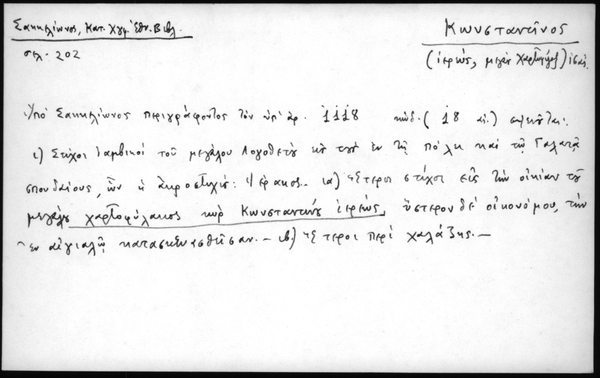 Σακκελίωνος, Κατ. Χγρ. Ἐθν. Βιβλ.
σελ. 202
Κωνσταντῖνος
(ἱερεύς, μέγας χαρτοφύλαξ)
Ὑπὸ Σακκελίωνος περιγράφοντος τὸν ὑπ' ἀρ. 1118 κώδ. (18 αἰ.) σημειοῦται:
ι) Στίχοι ἰαμβικοί τοῦ μεγάλου Λογοθέτου ἐν τῇ Πόλει καὶ τῷ Γαλατᾷ
σπουδαίους, ὧν ἡ ἀκροστιχίς: Ἱέρακος. – ια) Ἕτεροι στίχοι εἰς τὴν οἰκίαν τοῦ
μεγάλου χαρτοφύλακος κὺρ Κωνσταντίνου ἱερέως, ὕστερον δὲ οἰκονόμου, τὴν
ἐν αἰγιαλῷ κατασκευασθεῖσαν. – ιβ) Ἕτεροι περὶ χαλάζης. –